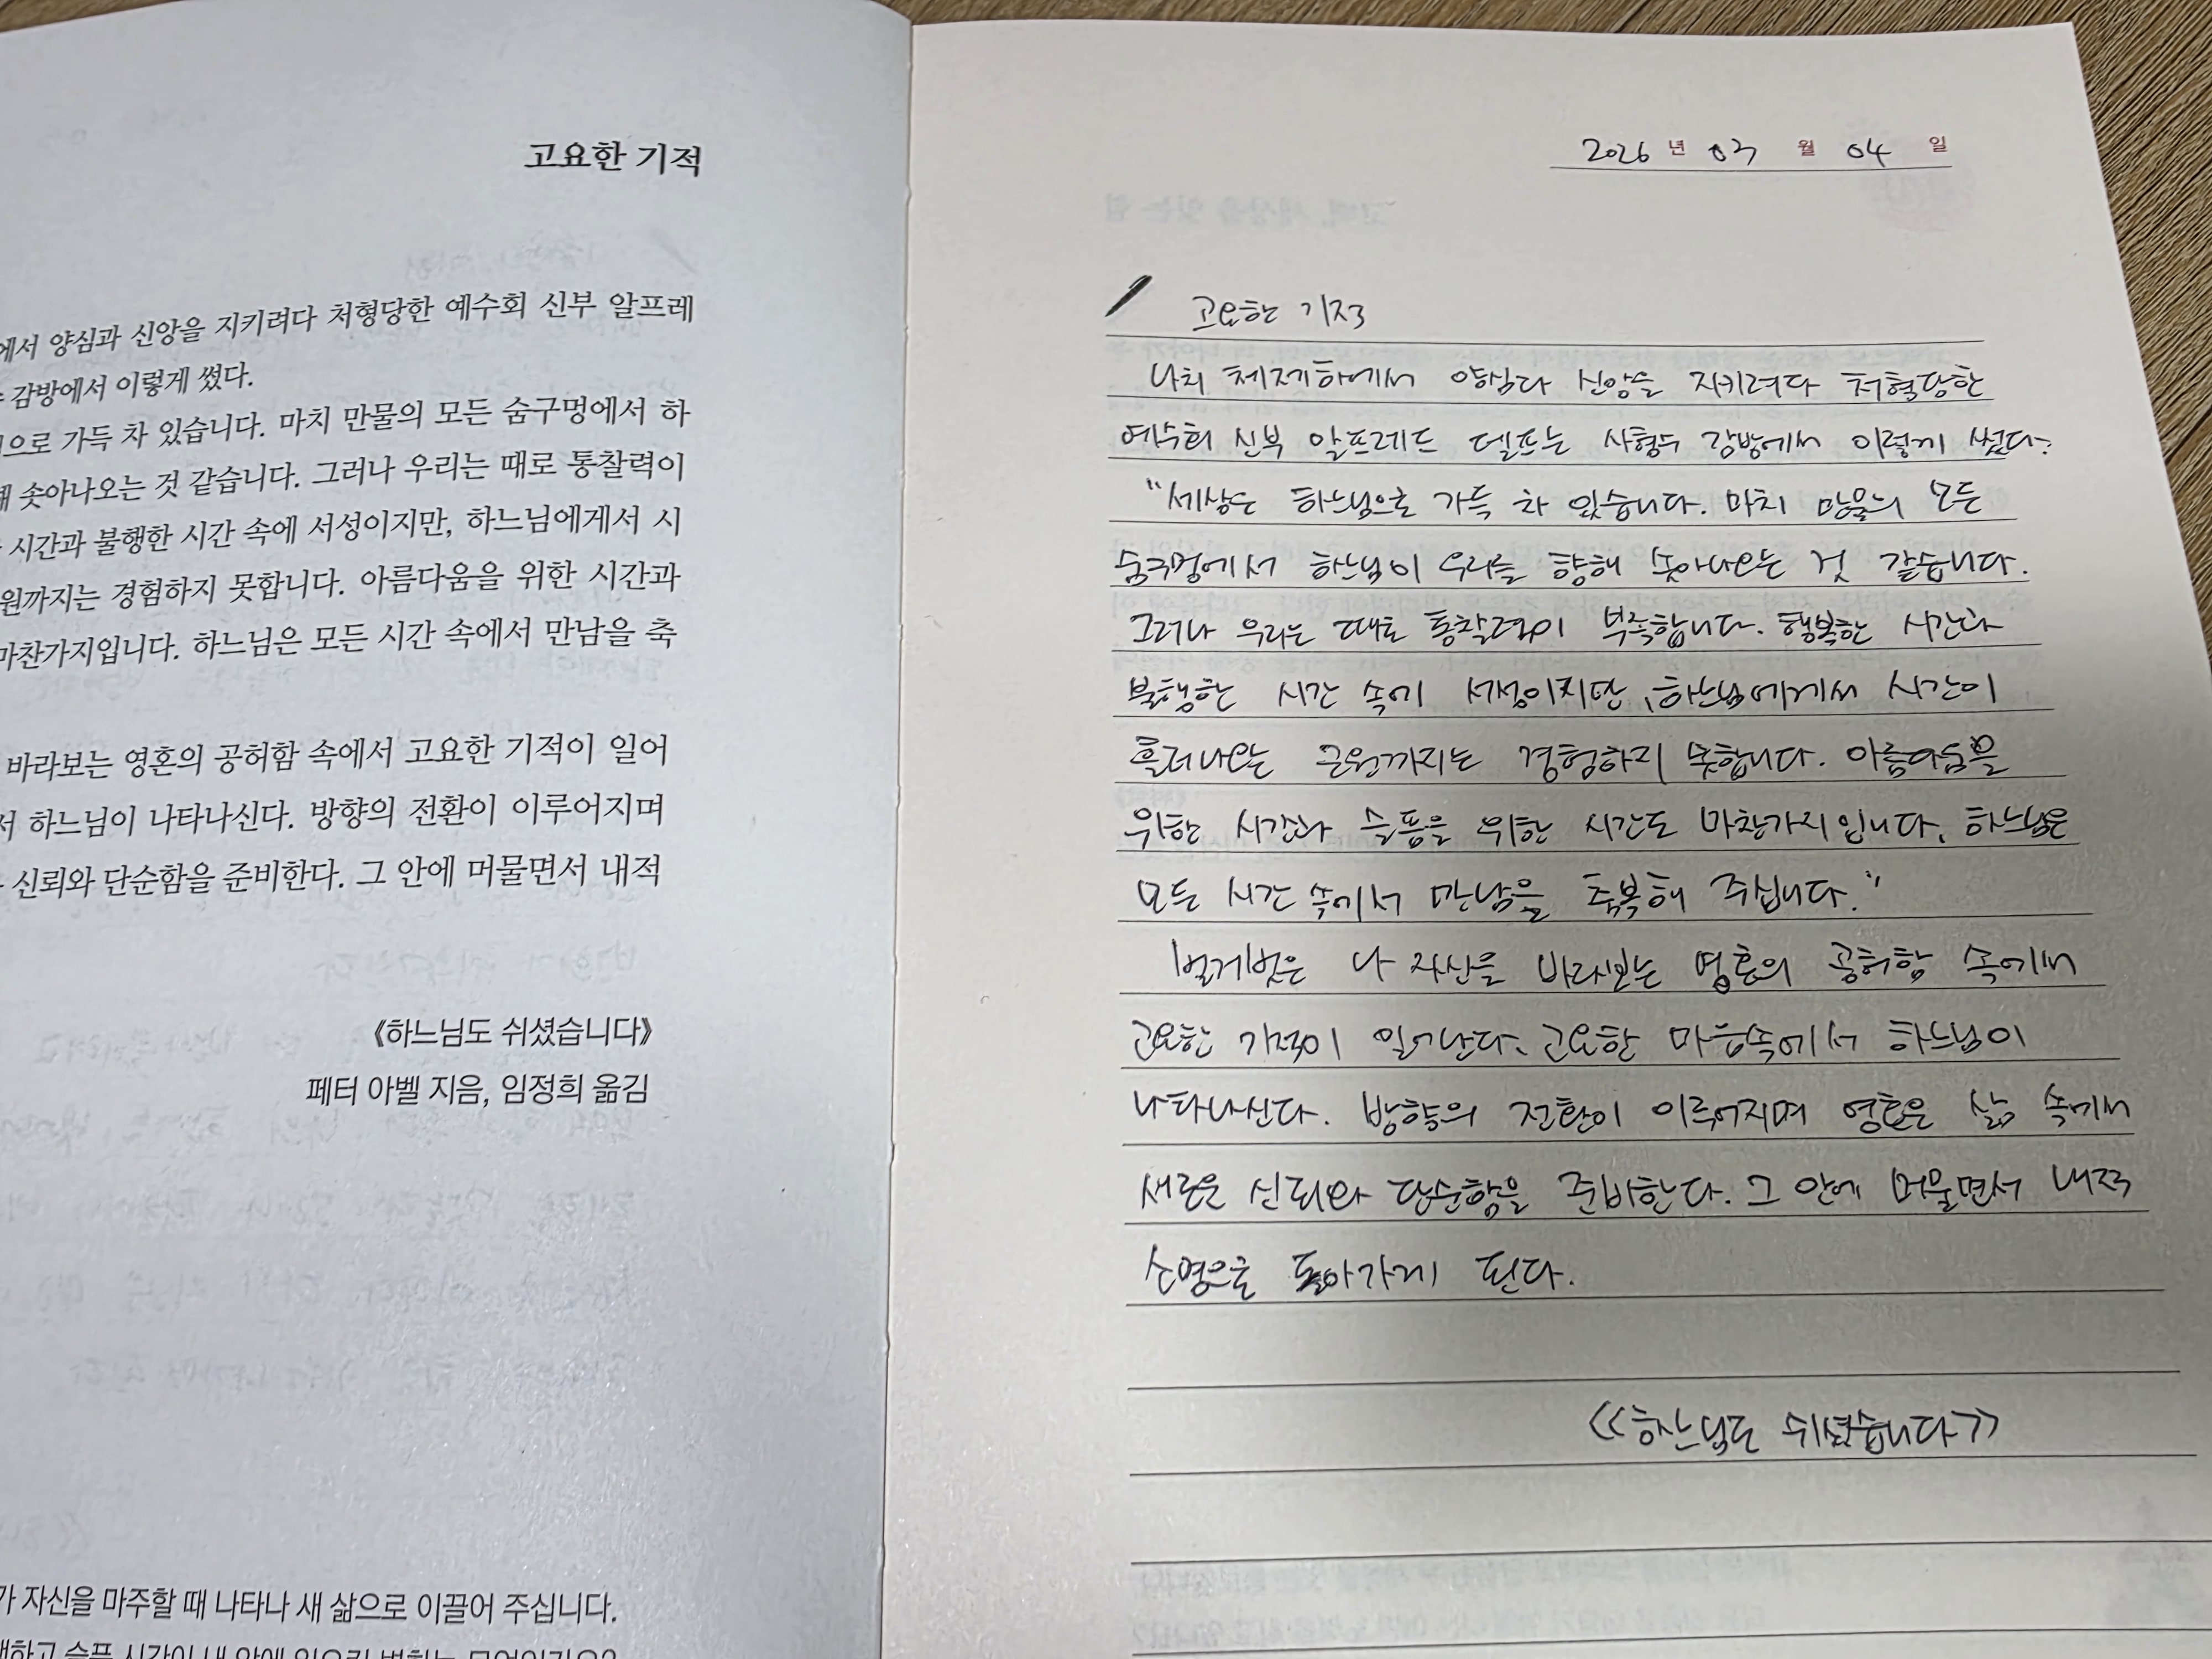 고요한 기적
에서 양심과 신앙을 지키려다 처형당한 예수회 신부 알프레
감방에서 이렇게 썼다.
으로 가득 차 있습니다. 마치 만물의 모든 숨구멍에서 하
솟아나오는 것 같습니다. 그러나 우리는 때로 통찰력이
시간과 불행한 시간 속에 서성이지만, 하느님에게서 시
원까지는 경험하지 못합니다. 아름다움을 위한 시간과
마찬가지입니다. 하느님은 모든 시간 속에서 만남을 축
바라보는 영혼의 공허함 속에서 고요한 기적이 일어
서 하느님이 나타나신다. 방향의 전환이 이루어지며
신뢰와 단순함을 준비한다. 그 안에 머물면서 내적
《하느님도 쉬셨습니다》
페터 아벨 지음, 임정희 옮김
가 자신을 마주할 때 나타나 새 삶으로 이끌어 주십니다.
2026 년 03 월 04 일
고요한 기적
나치 체제하에서 양심과 신앙을 지키려다 처형당한
예수회 신부 알프레드 델프는 사형수 감방에서 이렇게 썼다.
"세상은 하느님으로 가득 차 있습니다. 마치 만물의 모든
숨구멍에서 하느님이 우리를 향해 솟아나오는 것 같습니다.
그러나 우리는 때로 통찰력이 부족합니다. 행복한 시간과
불행한 시간 속에 서성이지만, 하느님에게서 시간이
흘러나오는 근원까지는 경험하지 못합니다. 아름다움을
위한 시간과 슬픔을 위한 시간도 마찬가지입니다. 하느님은
모든 시간 속에서 만남을 축복해 주십니다."
벌거벗은 나 자신을 바라보는 영혼의 공허함 속에서
고요한 기적이 일어난다. 고요한 마음속에서 하느님이
나타나신다. 방향의 전환이 이루어지며 영혼은 삶 속에서
새로운 신뢰와 단순함을 준비한다. 그 안에 머물면서 내적
소명으로 돌아가게 된다.
<<하느님도 쉬셨습니다>>